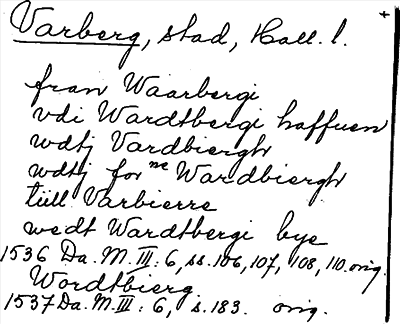 Varberg, stad, Hall. l. +
fran Waarbergi
vdi Wardtbergi haffuen
wdtj Vardbiergh
wdtj for^ne Wardbiergh
tiill Varbierre
wedt Wardtbergi bye
1536 Da. M. III: 6, ss. 106, 107, 108, 110. orig.
Wordtbierg
1537 Da. M. III: 6, s. 183. orig.